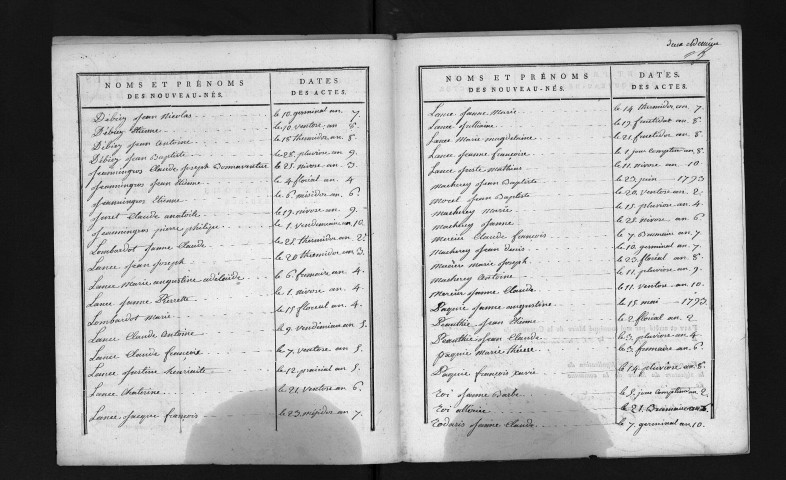 NOMS ET PRÉNOMS
DES NOUVEAU-NÉS.
DATES
DES ACTES.
Débiry Jean Nicolas le 10. germinal an. 7.
Débiry Etienne le 10. ventose an. 8.
Débiry Jean Antoine le 18 thermidor an. 8.
Débiry Jean Baptiste le 28. pluviose an. 9.
Jeanningros Claude Joseph Bonnaventure le 21. nivose an. 3.
Jeanningros Jean Etienne le 4. floréal an. 4
Jeanningros Etienne le 6. messidor an. 6.
Juret Claude anatoile le 19. nivose an. 9.
Jeanningros pierre philippe le 1. vendemiaire an. 10.
Lombardot Jeanne Claude le 28 thermidor an. 2.
Lance Jean Joseph le 20 thermidor an. 3.
Lance Marie augustine adélaïde le 6. frimaire an. 4.
Lance Jeanne Pierrette le 1. nivose an. 4.
Lombardot Marie le 15 floreal an. 4.
Lance Claude Antoine le 9. vendémiaire an. 5.
Lance Claude françois le 7. ventose an. 5.
Lance Justine henriette le 12. prairial an. 5.
Lance Chaterine le 21. ventose an. 6
Lance Jacque françois le 23. messidor an. 7.
NOMS ET PRÉNOMS
DES NOUVEAU-NÉS.
DATES.
DES ACTES.
Lance Jeanne Marie le 14 thermidor an. 7.
Lance Julienne le 17 fructidor an. 8.
Lance Marie magdelaine le 21. fructidor an. 8.
Lance Jeanne françoise le 1 jour complém an 8.
Lance Juste mathieu le 11. nivose an. 10.
Macherey Jean Baptiste le 23. juin 1793
Morel Jean Baptiste le 20. ventose an. 2.
Macherey Marie le 15. pluviose an. 4.
Macherey Jeanne le 25. nivose an. 6
Mercier Claude françois le 7. Brumaire an. 7.
Macherey Jean denis le 10. germinal an. 7.
Mercier Marie Joseph le 23. floréal an. 8.
Macherey Antoine le 11. pluviose an. 9.
Mercier Jeanne Claude le 11. ventose an. 10.
Paguié Jeanne augustine le 15. mai 1793.
Jean Etienne le 2. floréal an. 2
Jean Claude le 5. pluviose an. 4
paguié Marie thérese le 3. frimaire an. 6.
Paguié françois xavié le 14. pluviose an. 8.
Roi Jeanne Barbe le 5. jour complém an. 2.
Roi le 21. Brumaire an
Jeanne Claude le 7. germinal an 10.